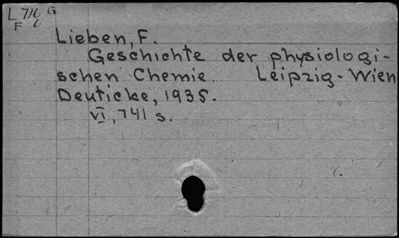 L716 G
F 6
Lieben, F.
Geschichte der physiologi-
schen Chemie. Leipzig-Wien
Deuticke, 1935.
VI, 741 s.